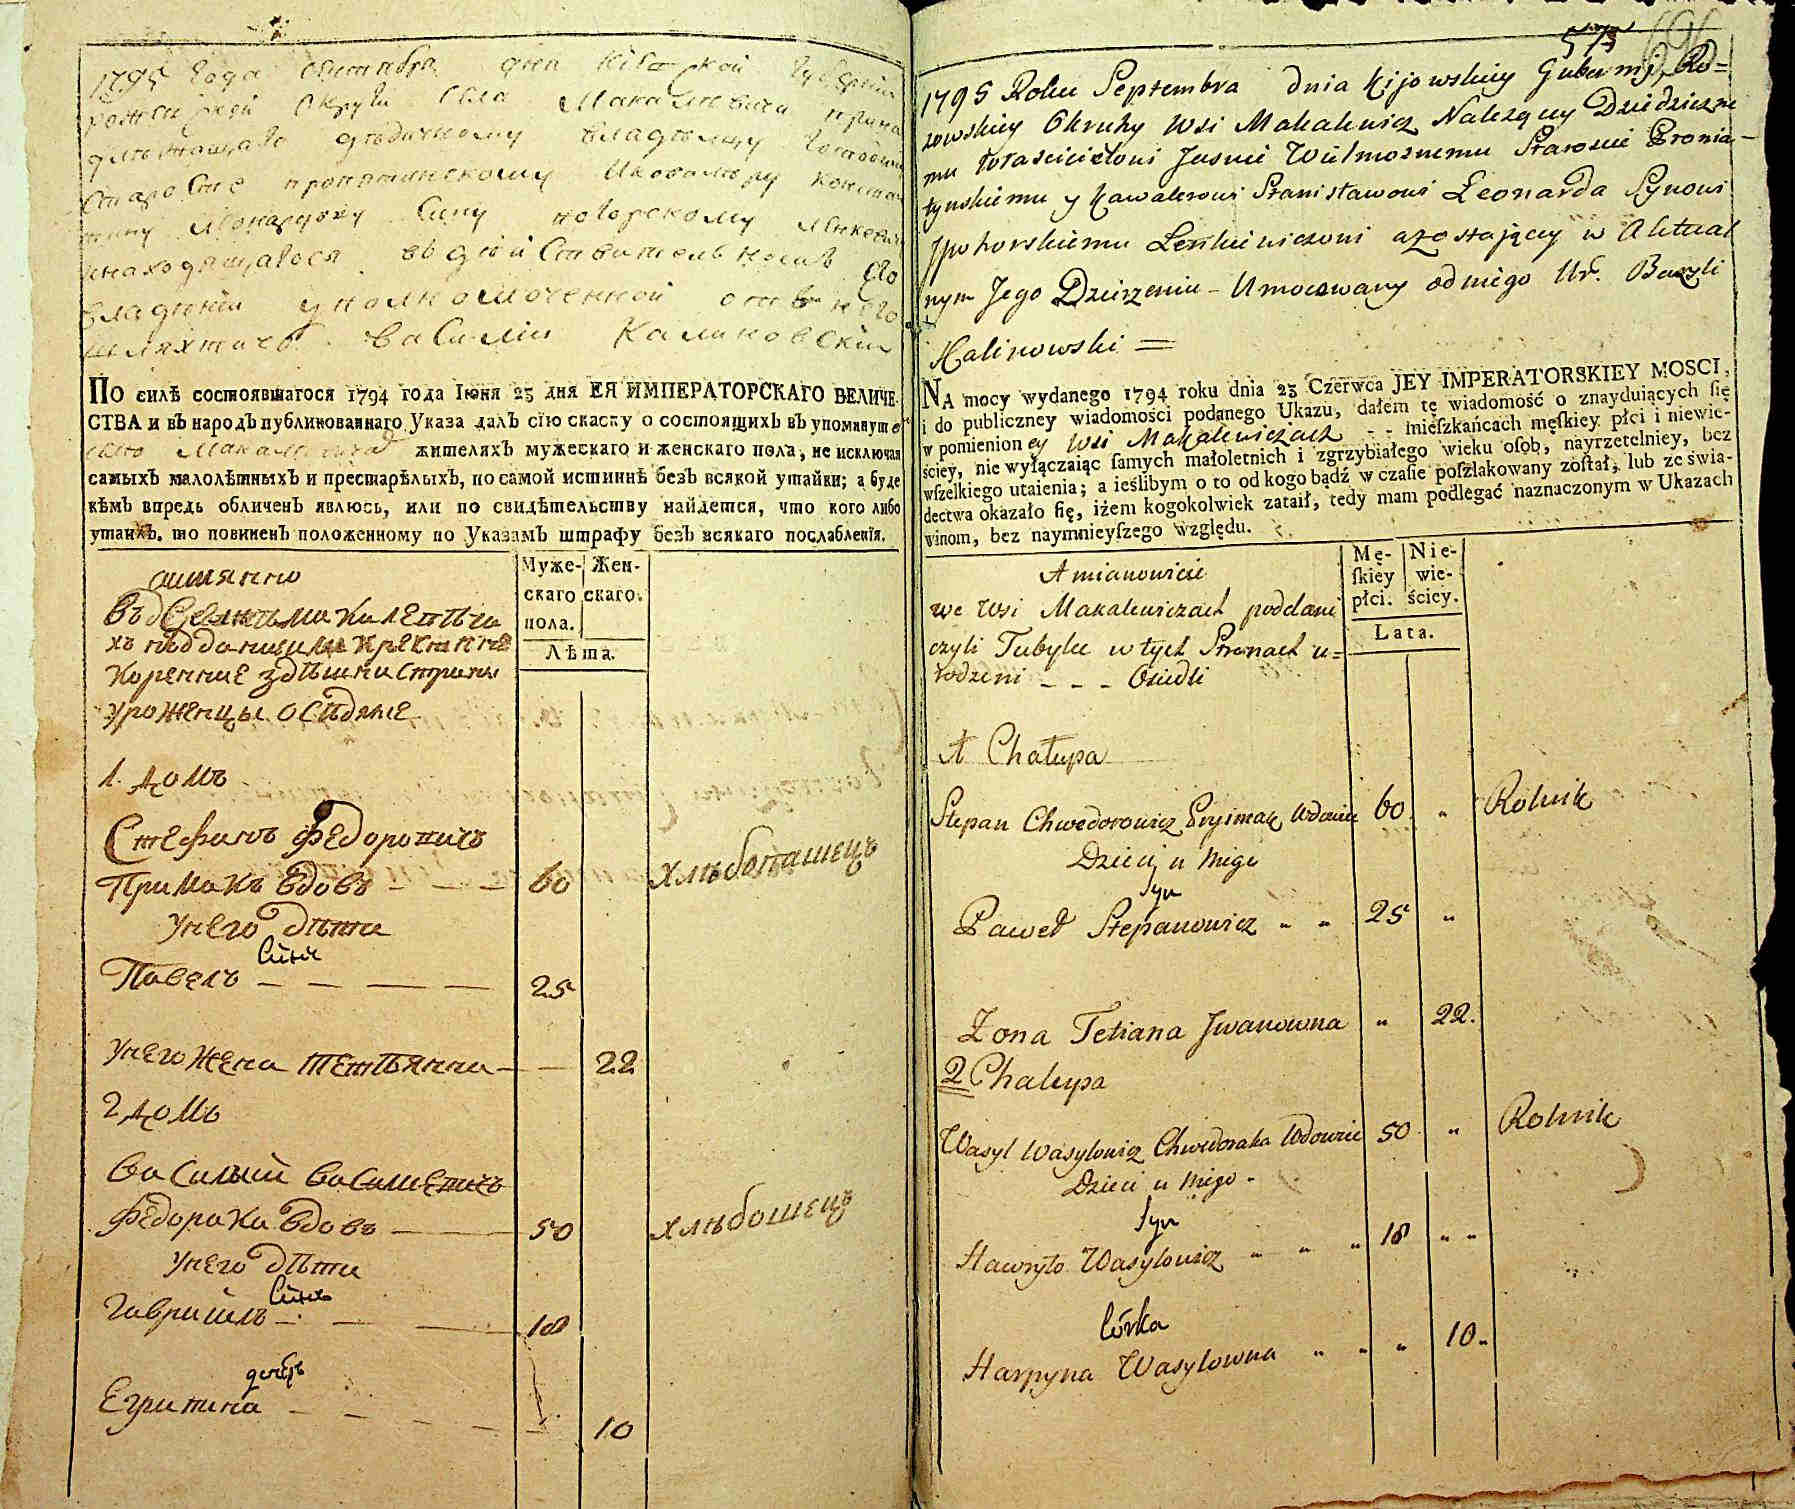 1795 года сентабра дня Кіевской Губерніи
округи села Макалевичи прина
длежащаго дѣдичному владѣльцу
Старосте пропятинскому Икавалеру
Леонардову Сину
инаходящагося въ дѣйствителномъ Его
владѣніи уполномоченной отъ него
шляхтичъ василій Калиновскій
ПО силѣ состоявшагося 1794 года Іюня 23 дня ЕЯ ИМПЕРАТОРСКАГО ВЕЛИЧЕ-
СТВА и въ народъ публикованнаго Указа далъ сію скаску о состоящихъ въ упомянутo
жителяхъ мужескаго и женскаго пола, не исключая
самыхъ малолѣтныхъ и престарѣлыхъ, по самой истиннѣ безъ всякой утайки; а буде
кѣмъ впредь обличенъ явлюсь, или по свидѣтельству найдется, что кого либо
утаихъ. то повиненъ положенному по Указамъ штрафу безъ всякаго послабленія.
Муже-
скаго
пола.
Жен-
скаго.
Лѣта.
аимянно
въ Селѣ макалевича
хъ подданніи крестяне
коренние здѣшни страни
уроженцы осѣдлие
1. домъ
Стефанъ Федоровичъ
Примакъ вдовъ — — — 60 хлѣбопашецъ
унего дѣти
Синъ
Павелъ — — — — 25
унего жена тетьянна — — 22
2 домъ
василий василевичъ
Федорака вдовъ — 50 хлѣбошецъ
унего дѣти
Синъ
Гавриилъ — — — 18
дочеръ
Егрипина — — — — — 10
575
1795 Roku Septembra dnia Kijowskiey Gubernyi, Ro=
zowskiey Okruhy Wsi Makalewicz Nalezącey Dziedziczne
mu włascicielowi Jasnie Wielmoznemu Staroscie Pronia-
tynskiemu y Kawalerowi Stanisławowi Leonarda Synowi
Spohorskiemu Lenkiewiczowi a zostającey w Aktual
nym Jego Dzierzeniu - Umocowany od niego Ur. Bazyli
Kalinowski =
NA mocy wydanego 1794 roku dnia 23 Czerwca JEY IMPERATORSKIEY MOSCI,
i do publiczney wiadomości podanego Ukazu, dałem tę wiadomość o znayduiących ſię
w pomienioney Wsi Makalewiczach - - mieſzkańcach męſkiey płci i niewie-
ściey, nie wyłączaiąc ſamych małoletnich i zgrzybiałego wieku oſob, nayrzetelniey, bez
wſzelkiego utaienia; a ieślibym o to od kogo bądź w czaſie poſzlakowany zoſtał, lub ze świa-
dectwa okazało ſię, iżem kogokolwiek zataił, tedy mam podlegać naznaczonym w Ukazach
winom, bez naymnieyſzego względu.
Mę-
ſkiey
płci.
Nie-
wie-
ściey.
Lata.
A mianowicie
we Wsi Makalewiczach poddani
czyli Tubylce w tych Stronach u=
rodzeni - - - Osiedli
1 Chałupa
Stepan Chwedorowicz Pryimak Wdowiec 60 " Rolnik
Dzieci u niego
Syn
Paweł Stepanowicz " " 25 "
Zona Tetiana Jwanowna " 22.
2 Chałupa
Wasyl Wasylowicz Chwedoraka Wdowiec 50 " Rolnik
Dzieci u niego -
Syn
Hawryło Wasylowicz " " " 18 " "
Córka
Harpyna Wasylowna " " " 10 "